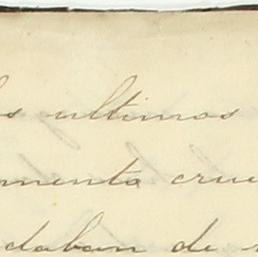 ls ultimos
mento crue
daban de